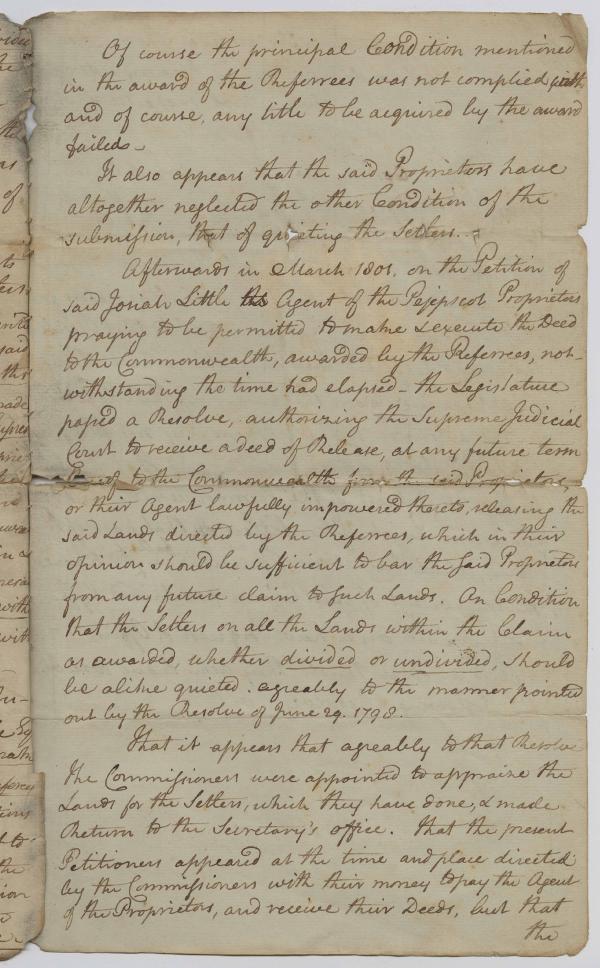 Of course the principal Condition mentioned
in the award of the Referrees was not complied with,
and of course, any title to be acquired by the award
failed.
It also appears that the said Proprietors have
altogether neglected the other Condition of the
submission, that of quieting the Setlers.
Afterwards in March 1801. on the Petition of
said Josiah Little Agent of the Pejepscot Proprietors
praying to be permitted to make & execute the Deed
to the Commonwealth, awarded by the Referrees, not-
withstanding the time had elapsed - the Legislature
passed a Resolve, authorizing the Supreme Judicial
Court to receive a deed of Release, at any future term
thereof to the Commonwealth from the said Proprietors,
or their Agent lawfully impowered thereto, releasing the
said Lands directed by the Referrees, which in their
opinion should be sufficient to bar the said Proprietors
from any future claim to such Lands. On Condition
that the Setlers on all the Lands within the Claim
as awarded, whether divided or undivided, should
be alike quieted. agreably to the manner pointed
out by the Resolve of June 29. 1798.
That it appears that agreably to that Resolve
the Commissioners were appointed to appraize the
Lands for the Setlers, which they have done, & made
Return to the Secretary's office. That the present
Petitioners appeared at the time and place directed
by the Commissioners with their money to pay the Agent
of the Proprietors, and receive their Deeds, but that
the